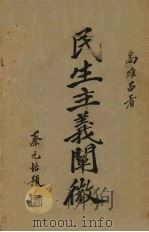 高維昌著
民生主義闡微
蔡元培題